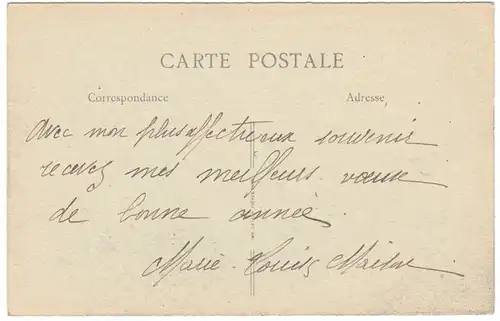 CARTE POSTALE
Correspondance
Adresse
Avec mon plus affectueux souvenir
recevez mes meilleurs vœux
de bonne année.
Marie-Louise